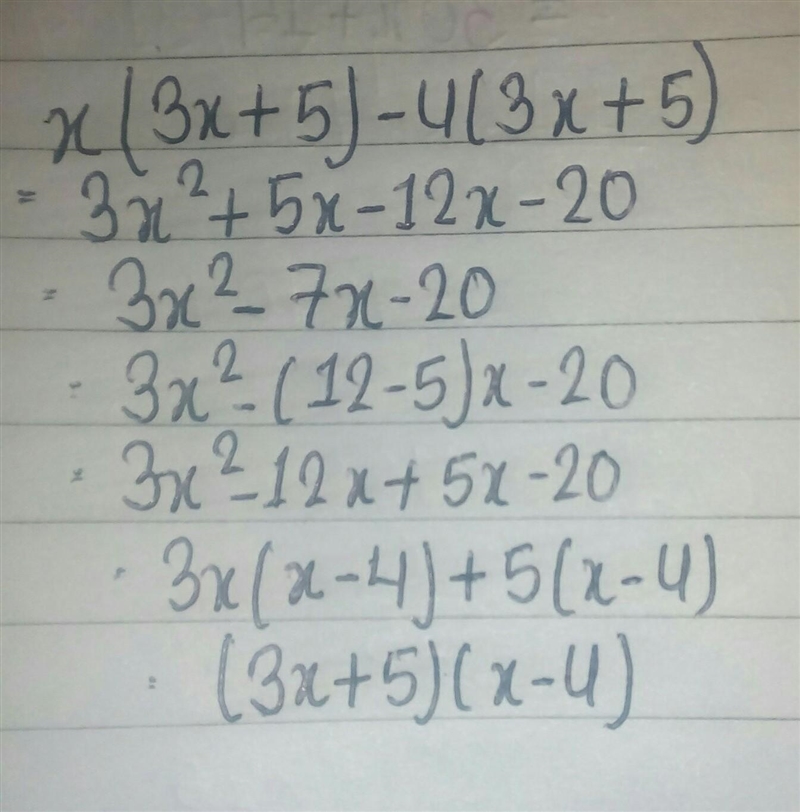 x(3x+5)-4(3x+5)
= 3x²+5x-12x-20
= 3x²-7x-20
= 3x²-(12-5)x-20
= 3x²-12x+5x-20
= 3x(x-4)+5(x-4)
= (3x+5)(x-4)